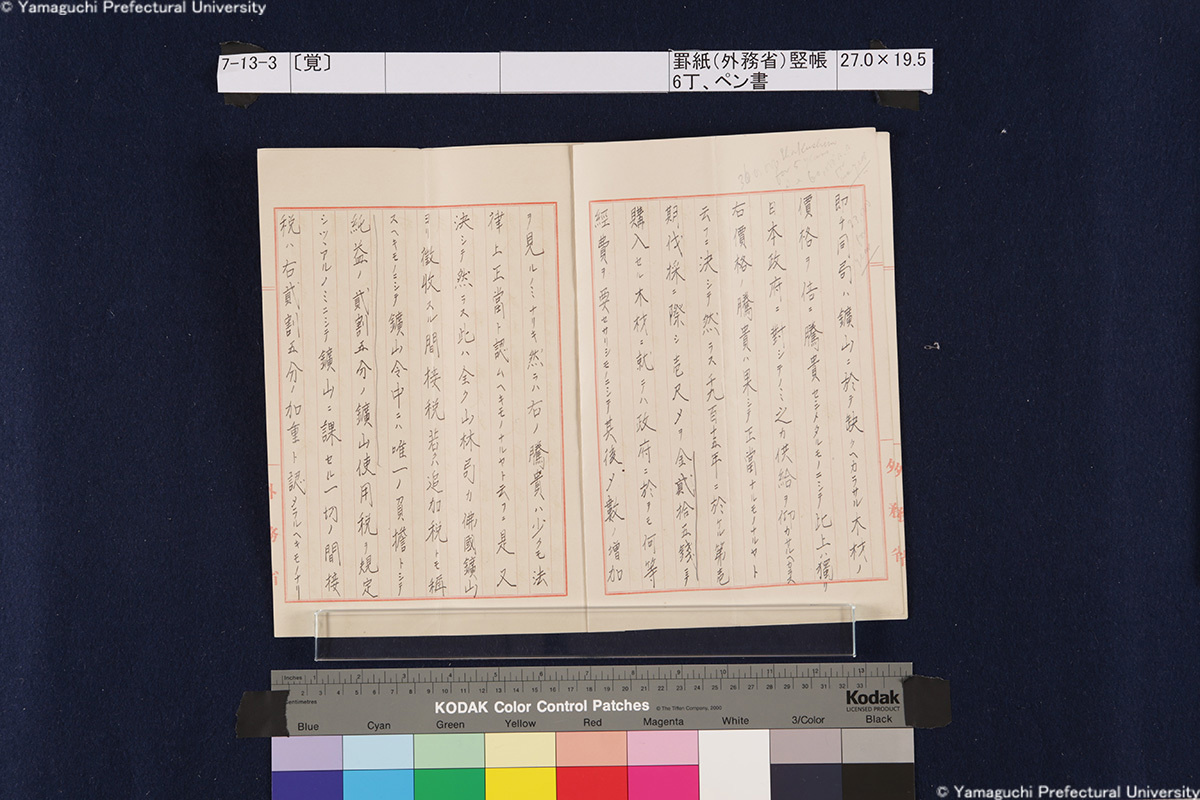 © Yamaguchi Prefectural University
7-13-3
〔覚〕
罫紙(外務省)竪帳
6丁、ペン書
27.0×19.5
即チ同局ハ鑛山ニ於テ缺クヘカラサル木材ノ
價格ヲ倍ニ騰貴セシメタルモノニシテ此上ハ獨リ
日本政府ニ對シテノミ之カ供給ヲ仰カサルヘカラス
右價格ノ騰貴ハ果シテ正當ナルモノナルヤト
云フニ決シテ然ラス千九百十五年ニ於ケル第壱
期伐採ニ際シ壱尺〆ヲ金貳拾五錢ヲ
購入セル木材ニ就テハ政府ニ於テモ何等
經費ヲ要セサリシモノニシテ其後〆數ノ増加
ヲ見ルノミナリキ然ラハ右ノ騰貴ハ少クモ法
律上正當ト認ムヘキモノナルヤト云フニ是又
決シテ然ラス此ハ全ク山林局カ佛國鑛山
ヨリ徴收スル間接税若クハ追加税トモ稱
スヘキモノニシテ鑛山令中ニハ唯一ノ負擔トシテ
純益ノ貳割五分ノ鑛山使用税ヲ規定
シツヽアルノミニシテ鑛山ニ課セル一切ノ間接
税ハ右貳割五分ノ加重ト認メラルヘキモノナリ
外務省
務省
inches
Centimetres
KODAK Color Control Patches
© The Tiffen Company, 2000
Kodak
LICENSED PRODUCT
Blue
Cyan
Green
Yellow
Red
Magenta
White
3/Color
Black
© Yamaguchi Prefectural University